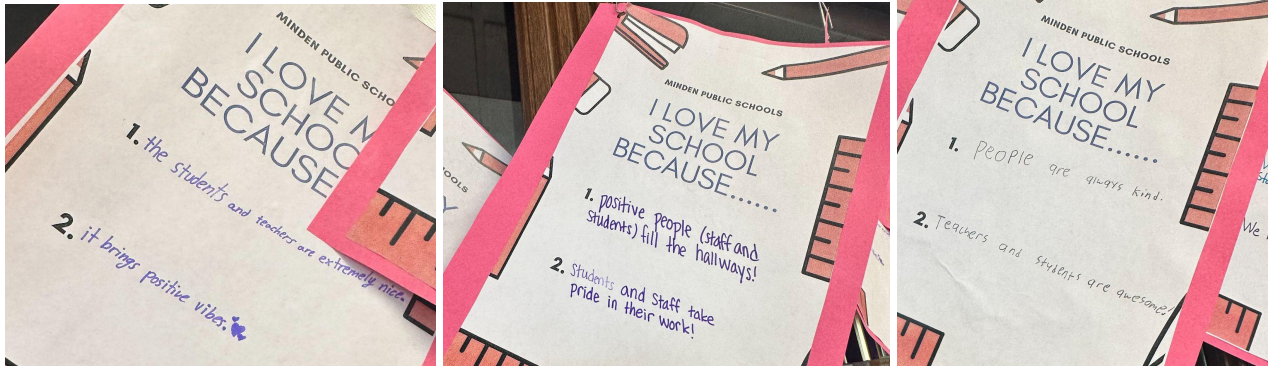 MINDEN PUBLIC SCHOO
I LOVE M
SCHOO
BECAUSE
1. the students and teachers are extremely nice.
2. it brings positive vibes.
OOLS
MINDEN PUBLIC SCHOOLS
I LOVE MY
SCHOOL
BECAUSE......
1. positive people (staff and
students) fill the hallways!
2. Students and Staff take
pride in their work!
MINDEN PUBLIC SCHOOLS
I LOVE MY
SCHOOL
BECAUSE......
1. PEOPLE are always kind.
2. Teachers and students are awesome!
We